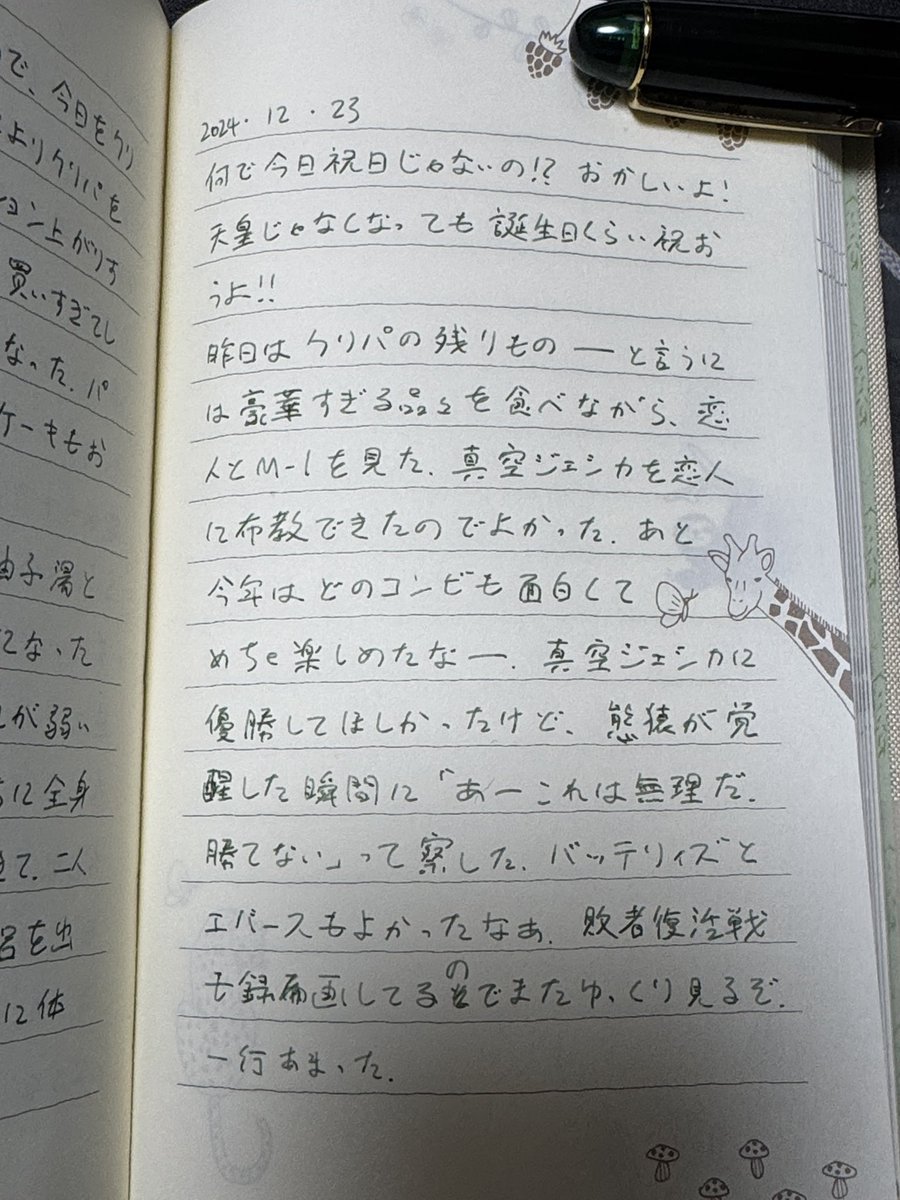 で、今日をクリ
よりクリパを
ション上がりす
買いすぎてし
なった．パ
ケーキもお
由子湯と
になった
が弱い
に全身
きて．二人
呂を出
に体
2024．12．23
何で今日祝日じゃないの!? おかしいよ！
天皇じゃなくなっても誕生日くらい祝お
うよ!!
昨日はクリパの残りもの ― と言うに
は豪華すぎる品々を食べながら、恋
人とM-1を見た．真空ジェシカを恋人
に布教できたのでよかった．あと
今年はどのコンビも面白くて
めちゃ楽しめたなー．真空ジェシカに
優勝してほしかったけど、態猿が覚
醒した瞬間に「あーこれは無理だ．
勝てない」って察した．バッテリィズと
エバースもよかったなぁ．敗者復活戦
も録画してるのでまたゆっくり見るぞ．
一行あまった．